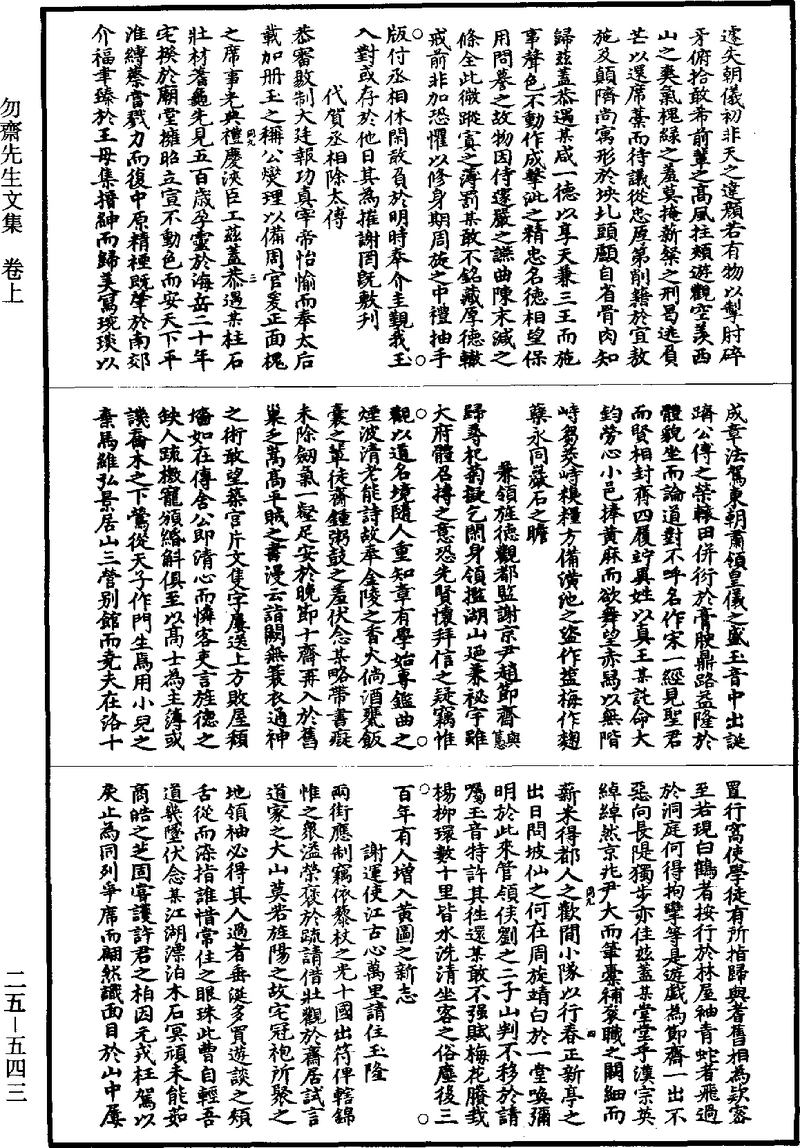 遽失朝儀初非天之違顏若有物以掣肘碎
牙俯拾敢希前輩之高風拄頰遊觀空羨西
山之爽氣槐綠之羞莫掩薪粲之刑曷逃負
芒以還席藁而待議從忠厚第削籍於宜敖
施及顛隮尚寓形於坱圠頭顱自省骨肉知
歸兹蓋恭遇某咸一德以享天兼三王而施
事聲色不動作成擊泚之精忠名德相望保
用問譽之故物因侍邃嚴之讌曲陳末減之
條全此微蹤寘之薄罰某敢不銘藏厚德轍
戒前非加恐懼以修身期周旋之中禮抽手
版付丞相休閑敢負於明時奉介圭覲我王
入對或存於他日其為摧謝罔既敷刋
代賀丞相除太傅
恭審敭制大廷報功真宰帝怡愉而奉太后
載加册玉之稱公燮理以備周官爰正面槐
之席事光典禮慶浹臣工兹蓋恭遇某柱石
壯材蓍龜先見五百歲孕靈於海岳二十年
宅揆於廟堂擁昭立宣不動色而安天下平
淮縛蔡嘗戮力而復中原精禋既肇於南郊
介福聿臻於王母集搢紳而歸美寫琬琰以
成章法駕東朝肅領皇儀之盛玉音中出誕
躋公傅之崇轅田併衍於膏腴鼎路益隆於
體貌坐而論道對不呼名作宋一經見聖君
而賢相封齊四履竚異姓以真王某託命大
鈞勞心小邑捧黃麻而欲舞望赤舄以無階
峙芻茭峙糗糧方備潢池之盜作鹽梅作麴
蘖永同巖石之瞻
兼領旌德觀都監謝京尹趙節齋與𥲅
歸尋杞菊擬乞閑身領攬湖山廼兼祕宇雖
大府體召摶之意恐先賢懷拜信之疑竊惟
觀以道名境隨人重知章有學始專鑑曲之
煙波清老能詩故奉金陵之香火倘酒甕飯
囊之輩徒齋鍾粥鼓之羞伏念某略帶書癡
未除劒氣一壑足安於晩節十齋再入於舊
巢之萬高平賊之書漫云詣闕無蓑衣通神
之術敢望築宫片文隻字屢送上方敗屋頹
墻如在傳舍公即清心而憐客吏言旌德之
缺人疏檄寵頒緡斛俱至以髙士為主簿或
譏喬木之下鶯從天子作門生焉用小兒之
棄馬維弘景居山三營别館而堯夫在洛十
置行窩使學徒有所指歸與耆舊相為欵密
至若現白鶴者按行於林屋袖青蛇者飛過
於洞庭何得拘攣等是遊戲為節齋一出不
惡向長隄獨步亦佳兹蓋某堂堂乎漢宗英
綽綽然京兆尹大而筆橐補衮職之闕細而
薪米得都人之歡間小隊以行春正新亭之
出日問坡仙之何在周旋靖白於一堂喚彌
明於此來管領侯劉之二子山判不移於請
囑玉音特許其徃還某敢不强賦梅花賸栽
楊柳環數十里皆水洗清坐客之俗塵後三
百年有人增入黃圖之新志
謝運使江古心萬里請住玉隆
兩街應制竊依藜杖之光十國出符俾轄錦
惟之衆溢榮襃於疏請借壯觀於齋居試言
道家之大山莫若旌陽之故宅冠袍所聚之
地領袖必得其人過者垂涎多買遊談之頰
舌從而染指誰惜常住之眼珠此曹自輕吾
道幾墮伏念某江湖漂泊木石冥頑未能茹
商皓之芝固嘗護許君之柏因元戎枉駕以
戾止為同列爭席而翩然識面目於山中屢
勿齋先生文集　卷上
二五－五四三